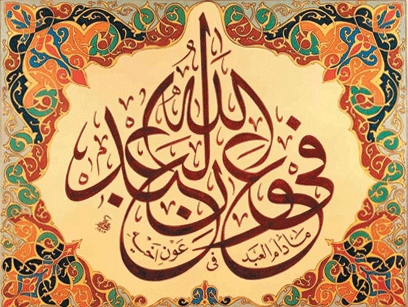 الله في عون العبد
مادام العبد في عون أخيه